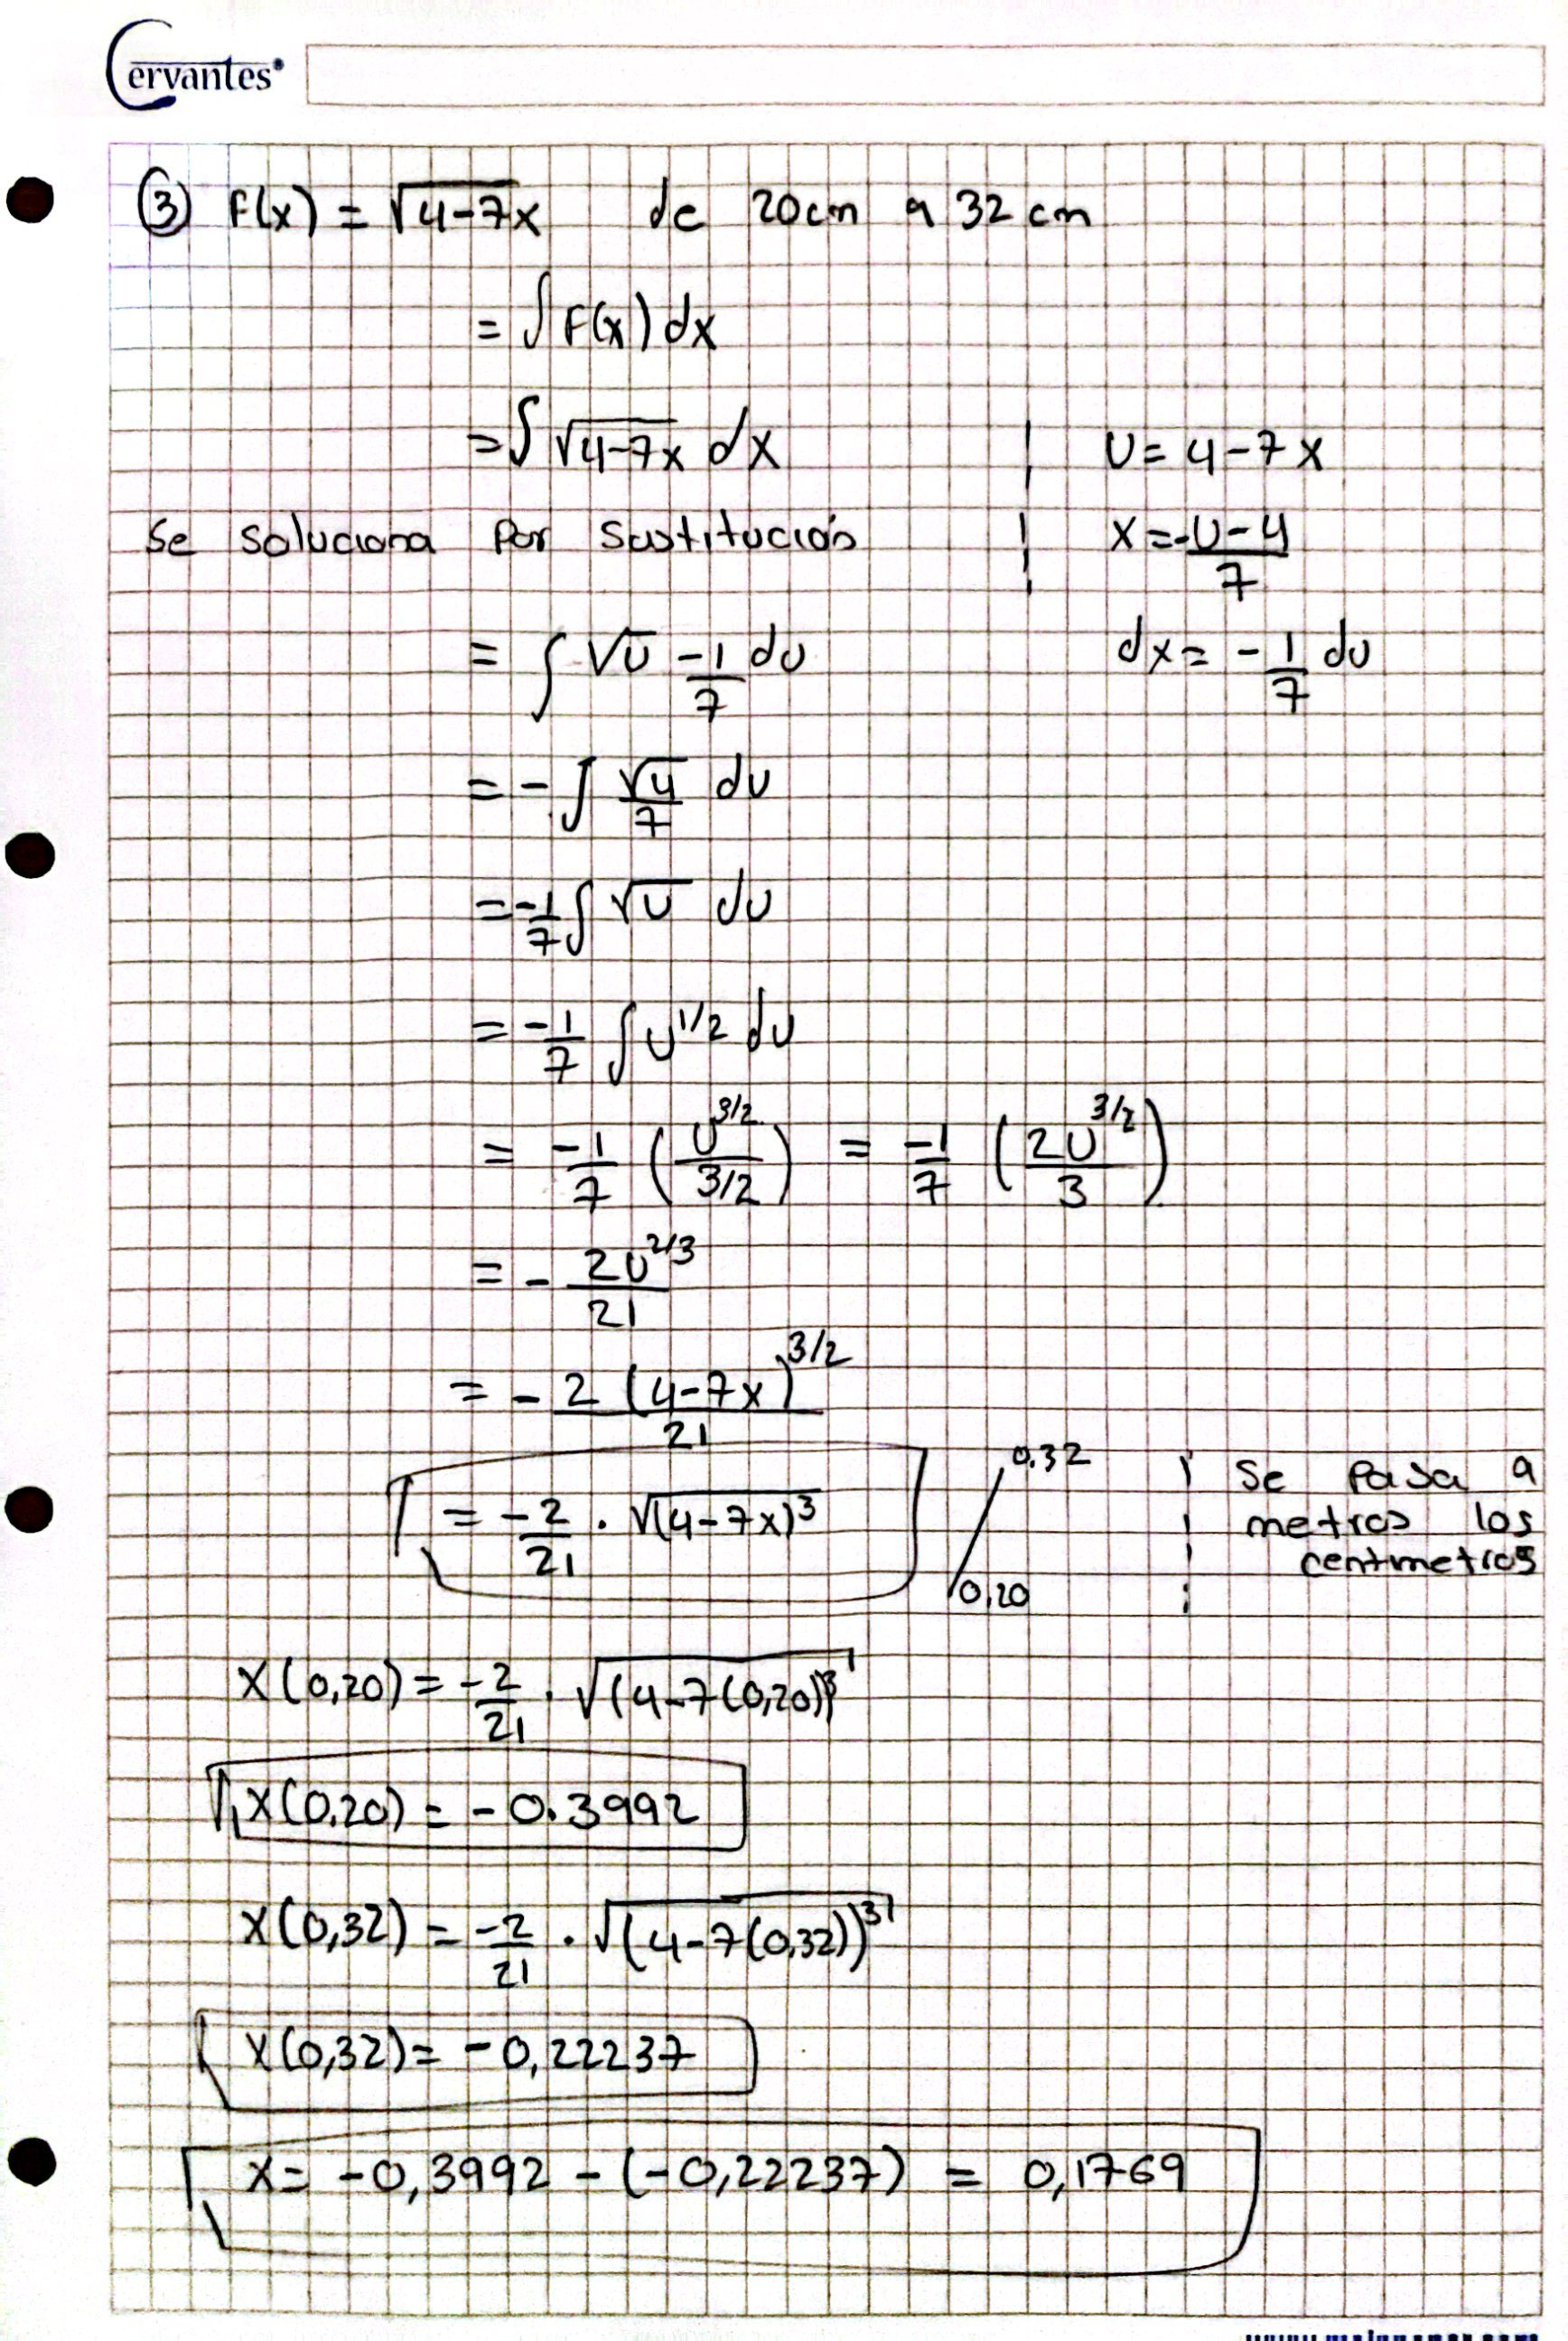 Cervantes
③ F(x) = √4-7x de 20cm a 32 cm
= ∫ F(x) dx
= ∫ √4-7x dx U= 4-7x
Se soluciona Por Sustitución X = -U-4/7
= ∫ √U -1/7 dU dx = -1/7 dU
= - ∫ √U/7 dU
= -1/7 ∫ √U dU
= -1/7 ∫ U^1/2 dU
= -1/7 (U^3/2 / 3/2) = -1/7 (2U^3/2 / 3)
= - 2U^2/3 / 21
= - 2 (4-7x)^3/2 / 21
= -2/21 . √(4-7x)^3 0,32 0,20 Se Pasa a
metros los
centimetros
X(0,20) = -2/21 . √(4-7(0,20))^3
X(0,20) = -0.3992
X(0,32) = -2/21 . √(4-7(0,32))^3
X(0,32) = -0,22237
X= -0,3992 - (-0,22237) = 0,1769